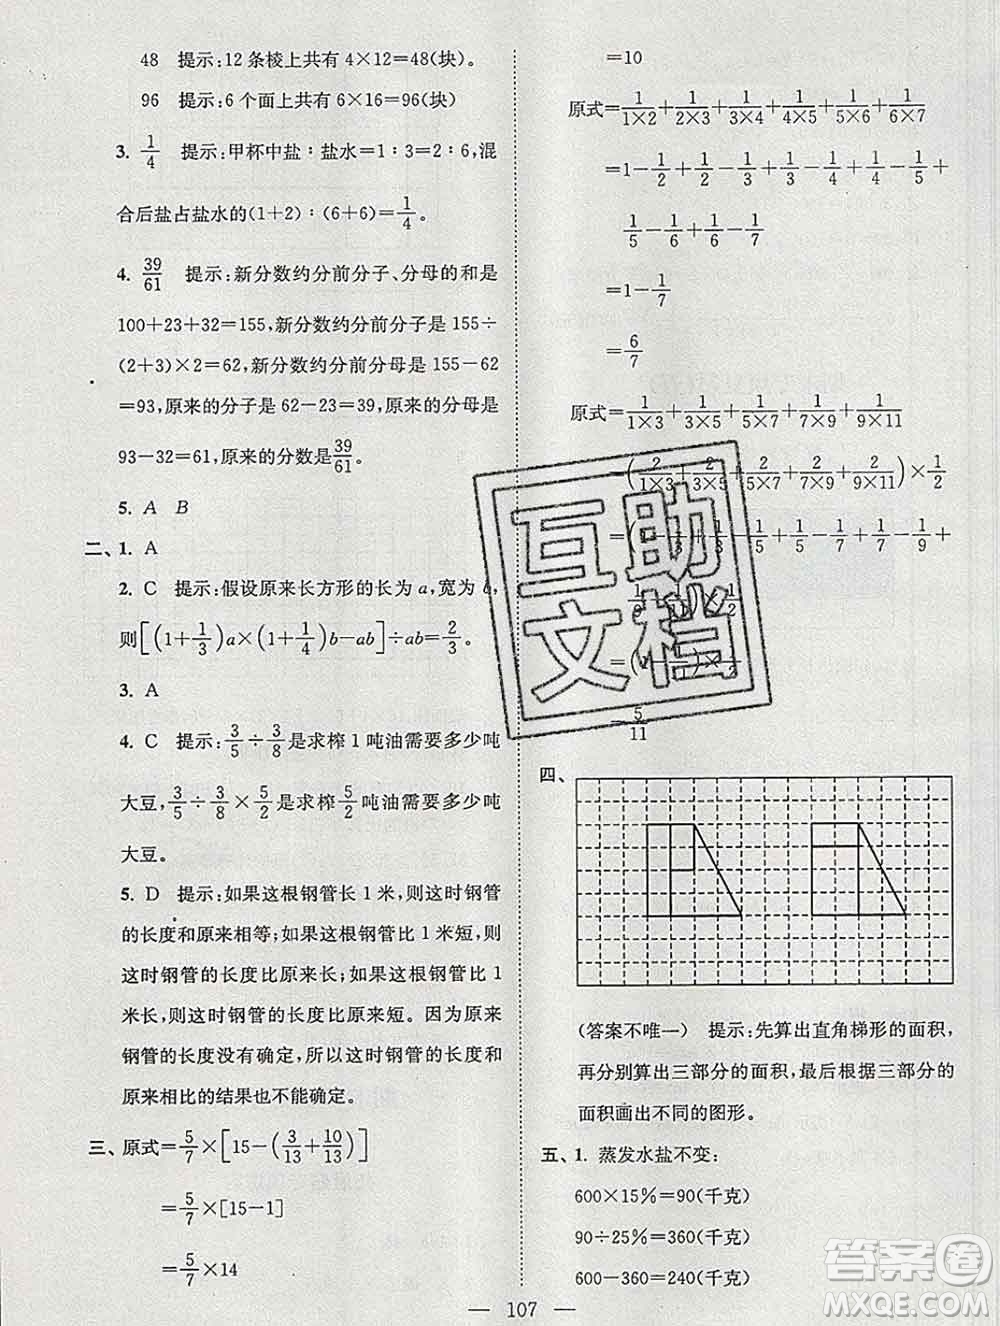 48 提示:12 条棱上共有 4×12=48(块)。
96 提示:6 个面上共有 6×16=96(块)
3. 1/4 提示:甲杯中盐∶盐水=1∶3=2∶6,混
合后盐占盐水的(1+2)∶(6+6)=1/4。
4. 39/61 提示:新分数约分前分子、分母的和是
100+23+32=155,新分数约分前分子是 155÷
(2+3)×2=62,新分数约分前分母是 155-62
=93,原来的分子是 62-23=39,原来的分母是
93-32=61,原来的分数是39/61。
5. A B
二、1. A
2. C 提示:假设原来长方形的长为 a,宽为 b,
则[(1+1/3)a×(1+1/4)b-ab]÷ab=2/3。
3. A
4. C 提示:3/5÷3/8是求榨 1 吨油需要多少吨
大豆,3/5÷3/8×5/2是求榨5/2吨油需要多少吨
大豆。
5. D 提示:如果这根钢管长 1 米,则这时钢管
的长度和原来相等;如果这根钢管比 1 米短,则
这时钢管的长度比原来长;如果这根钢管比 1
米长,则这时钢管的长度比原来短。因为原来
钢管的长度没有确定,所以这时钢管的长度和
原来相比的结果也不能确定。
三、原式=5/7×[15-(3/13+10/13)]
=5/7×[15-1]
=5/7×14
=10
原式=1/(1×2)+1/(2×3)+1/(3×4)+1/(4×5)+1/(5×6)+1/(6×7)
=1-1/2+1/2-1/3+1/3-1/4+1/4-1/5+
1/5-1/6+1/6-1/7
=1-1/7
=6/7
原式=1/(1×3)+1/(3×5)+1/(5×7)+1/(7×9)+1/(9×11)
=(2/(1×3)+2/(3×5)+2/(5×7)+2/(7×9)+2/(9×11))×1/2
=(1-1/3+1/3-1/5+1/5-1/7+1/7-1/9+
1/9-1/11)×1/2
=5/11
四、
(答案不唯一) 提示:先算出直角梯形的面积,
再分别算出三部分的面积,最后根据三部分的
面积画出不同的图形。
五、1. 蒸发水盐不变:
600×15%=90(千克)
90÷25%=360(千克)
600-360=240(千克)
— 107 —
互助
文档
答案圈
MXQE.COM